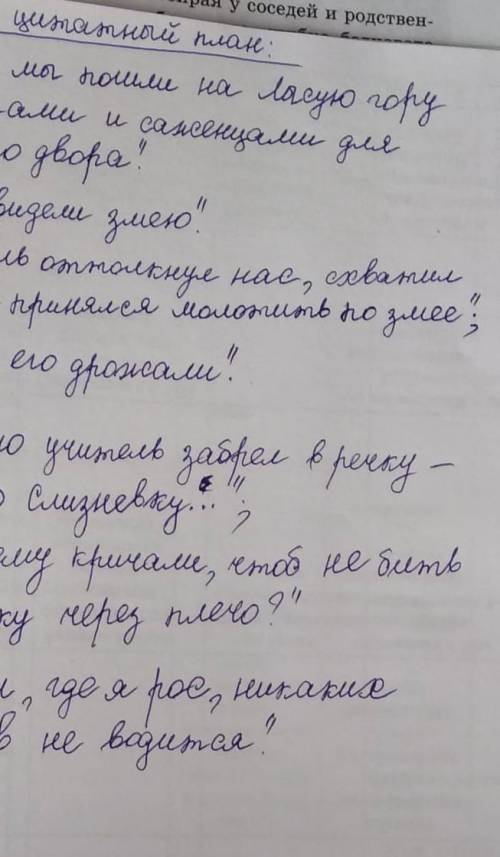 ирая у соседей и родствен-
цитатный план:
мы пошли на Лысую гору
ами и саженцами для
о двора".
видели змею".
ль оттолкнул нас, схватил
принялся молотить по змее";
его дрожали".
ю учитель забрел в речку –
о Слизневку...";
ему кричали, чтоб не бить
ку через плечо?"
и, где я рос, никаких
в не водится".